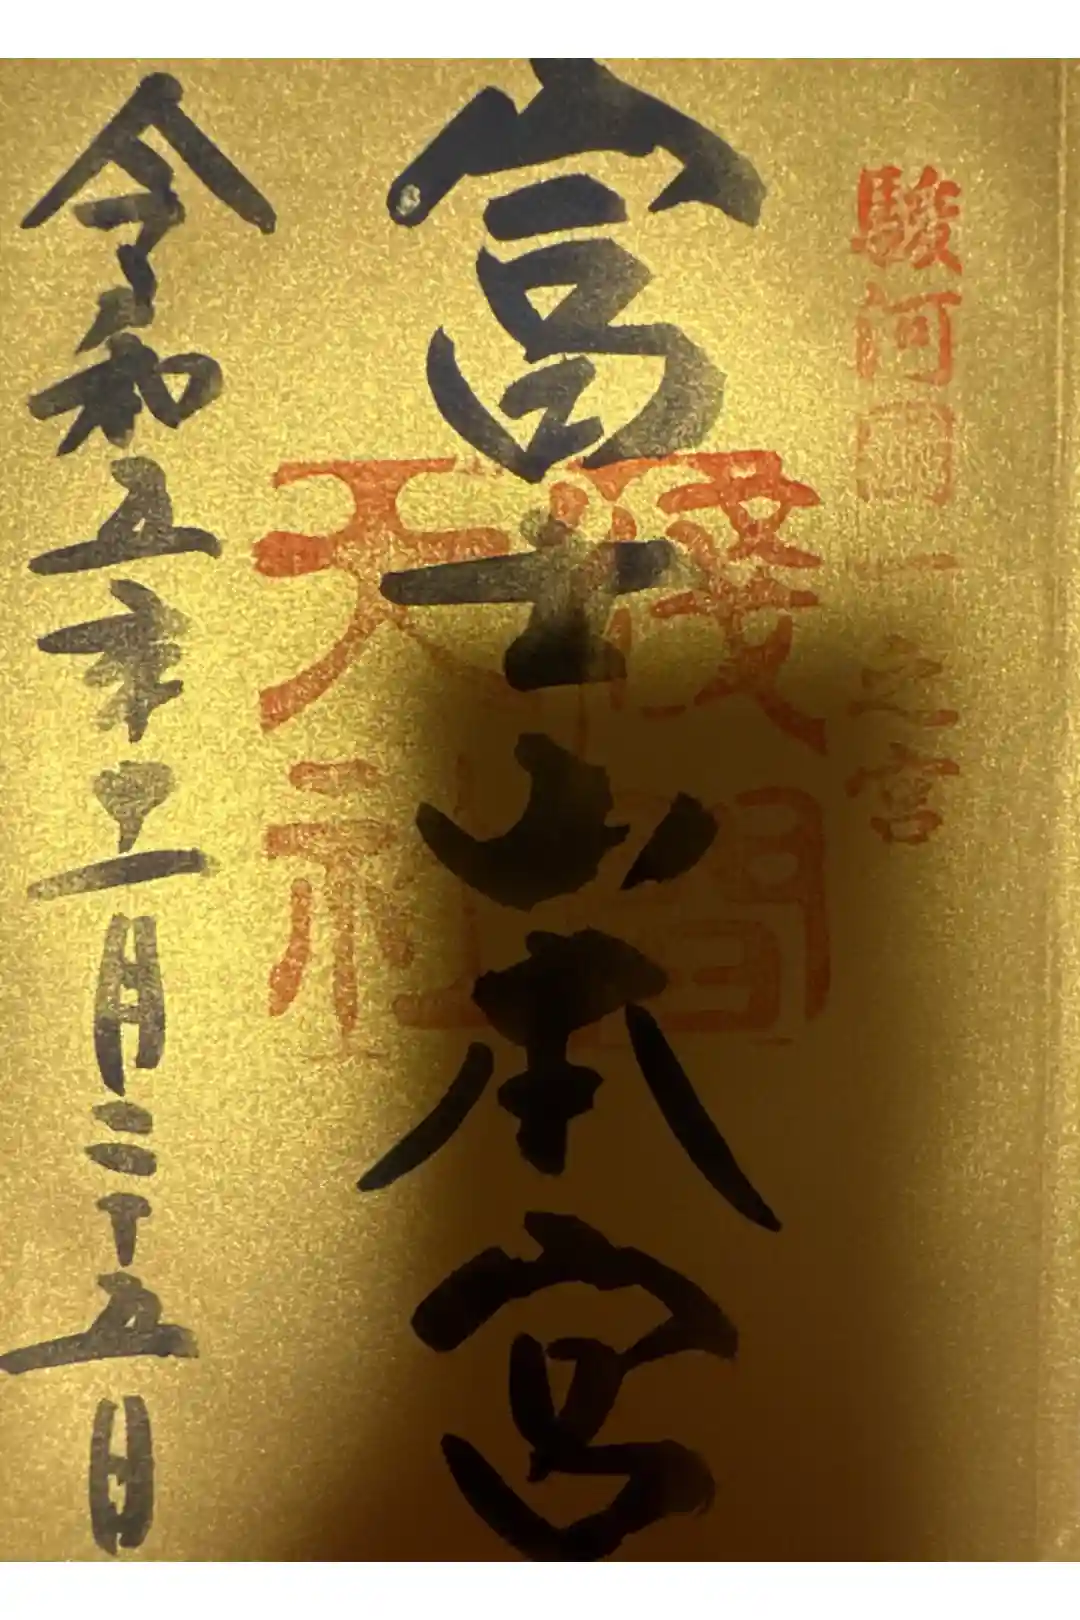 駿河國一之宮
富士山本宮
淺間大社
令和五年十一月二十五日